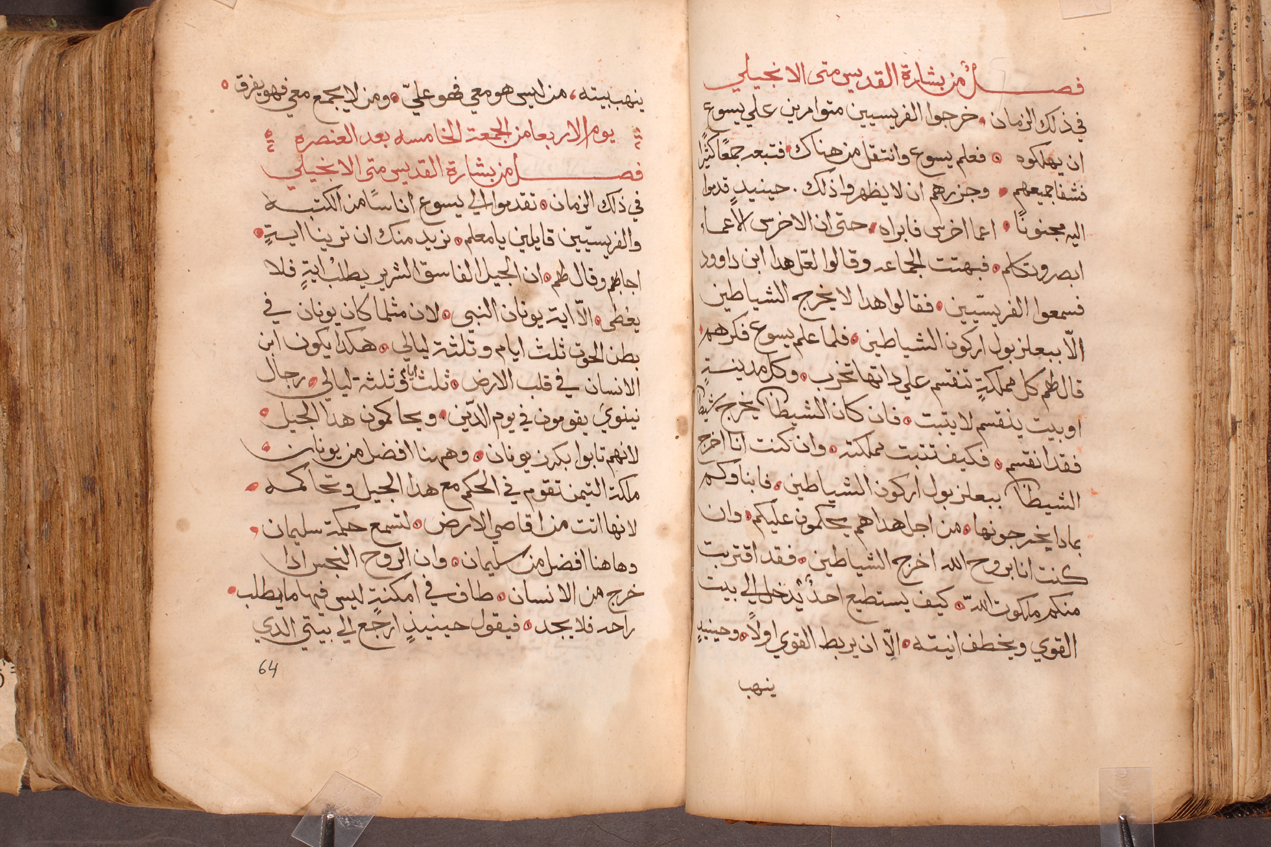 فصـــل من بشارة القديس متى الانجيلي
في ذلك الزمان خرجوا الفريسيين متوامرين علي يسوع
ان يهلكوه فعلم يسوع وانتقل من هناك فتبعه جمعًا كثيرًا
فشفا جميعهم وجزرهم ان لا يظهروا ذلك. حينيدٍ قدموا
اليه مجنونًا اعما اخرس فابراه حتى ان الاخرس الاعما
ابصر وتكلم فبهتت الجماعه وقالوا لعل هدا ابن داوود
فسمعوا الفريسيين فقالوا هدا لا يخرج الشياطين
الّا ببعلزبول اركون الشياطين فلما علم يسوع فكرهم
قال لهم كل مملكةٍ تنقسم علي داتها تخرب وكل مدينةٍ
او بيت ينقسم لا يتبت فان كان الشيطان يخرج شيطان
فقد انقسم فكيف تتبت مملكته وان كنت انا اخرج
الشيطان ببعلزبول اركون الشياطين فابناوكم
بمادا يخرجونها من اجل هدا هم يحكمون عليكم وان
كنت انا بروح الله اخرج الشياطين فقد اقتربت
منكم ملكوت الله كيف يستطيع احدٌ يدخل الي بيت
القوي ويخطف انيته الّا ان يربط القوي اولًا وحينيدٍ
ينهب
ينهب بيته من ليس هو معي فهو عليّ ومن لا يجمع معي فهو يفرق
يوم الاربعا من الجمعة الخامسه بعد العنصره
فصـــل من بشارة القديس متى الانجيلي
في ذلك الزمان تقدموا الي يسوع اناسًا من الكتبه
والفريسيين قايلين يا معلم نريد منك ان ترينا ايةٍ
اجابهم وقال لهم ان الجيل الفاسق الشرير يطلب ايةٍ فلا
يعطى الّا اية يونان النبي لان مثلما كان يونان في
بطن الحوت ثلث ايام وثلثة ليالي هكدا يكون ابن
الانسان في قلب الارض ثلث ايام وثلثة ليالي رجال
نينوي يقومون في يوم الدين ويحاكمون هدا الجيل
لانهم تابوا بكرز يونان وههنا افضل من يونان
ملكة التيمن تقوم في الحكم مع هدا الجيل وتحاكمه
لانها اتت من اقاصي الارض لتسمع حكمة سليمان
وهاهنا افضل من سليمان وان الروح النجس ادا
خرج من الانسان طاف في امكنةٍ ليس فيها ما يطلب
راحه فلا يجد فيقول حينيدٍ ارجع الي بيتي الدي
64